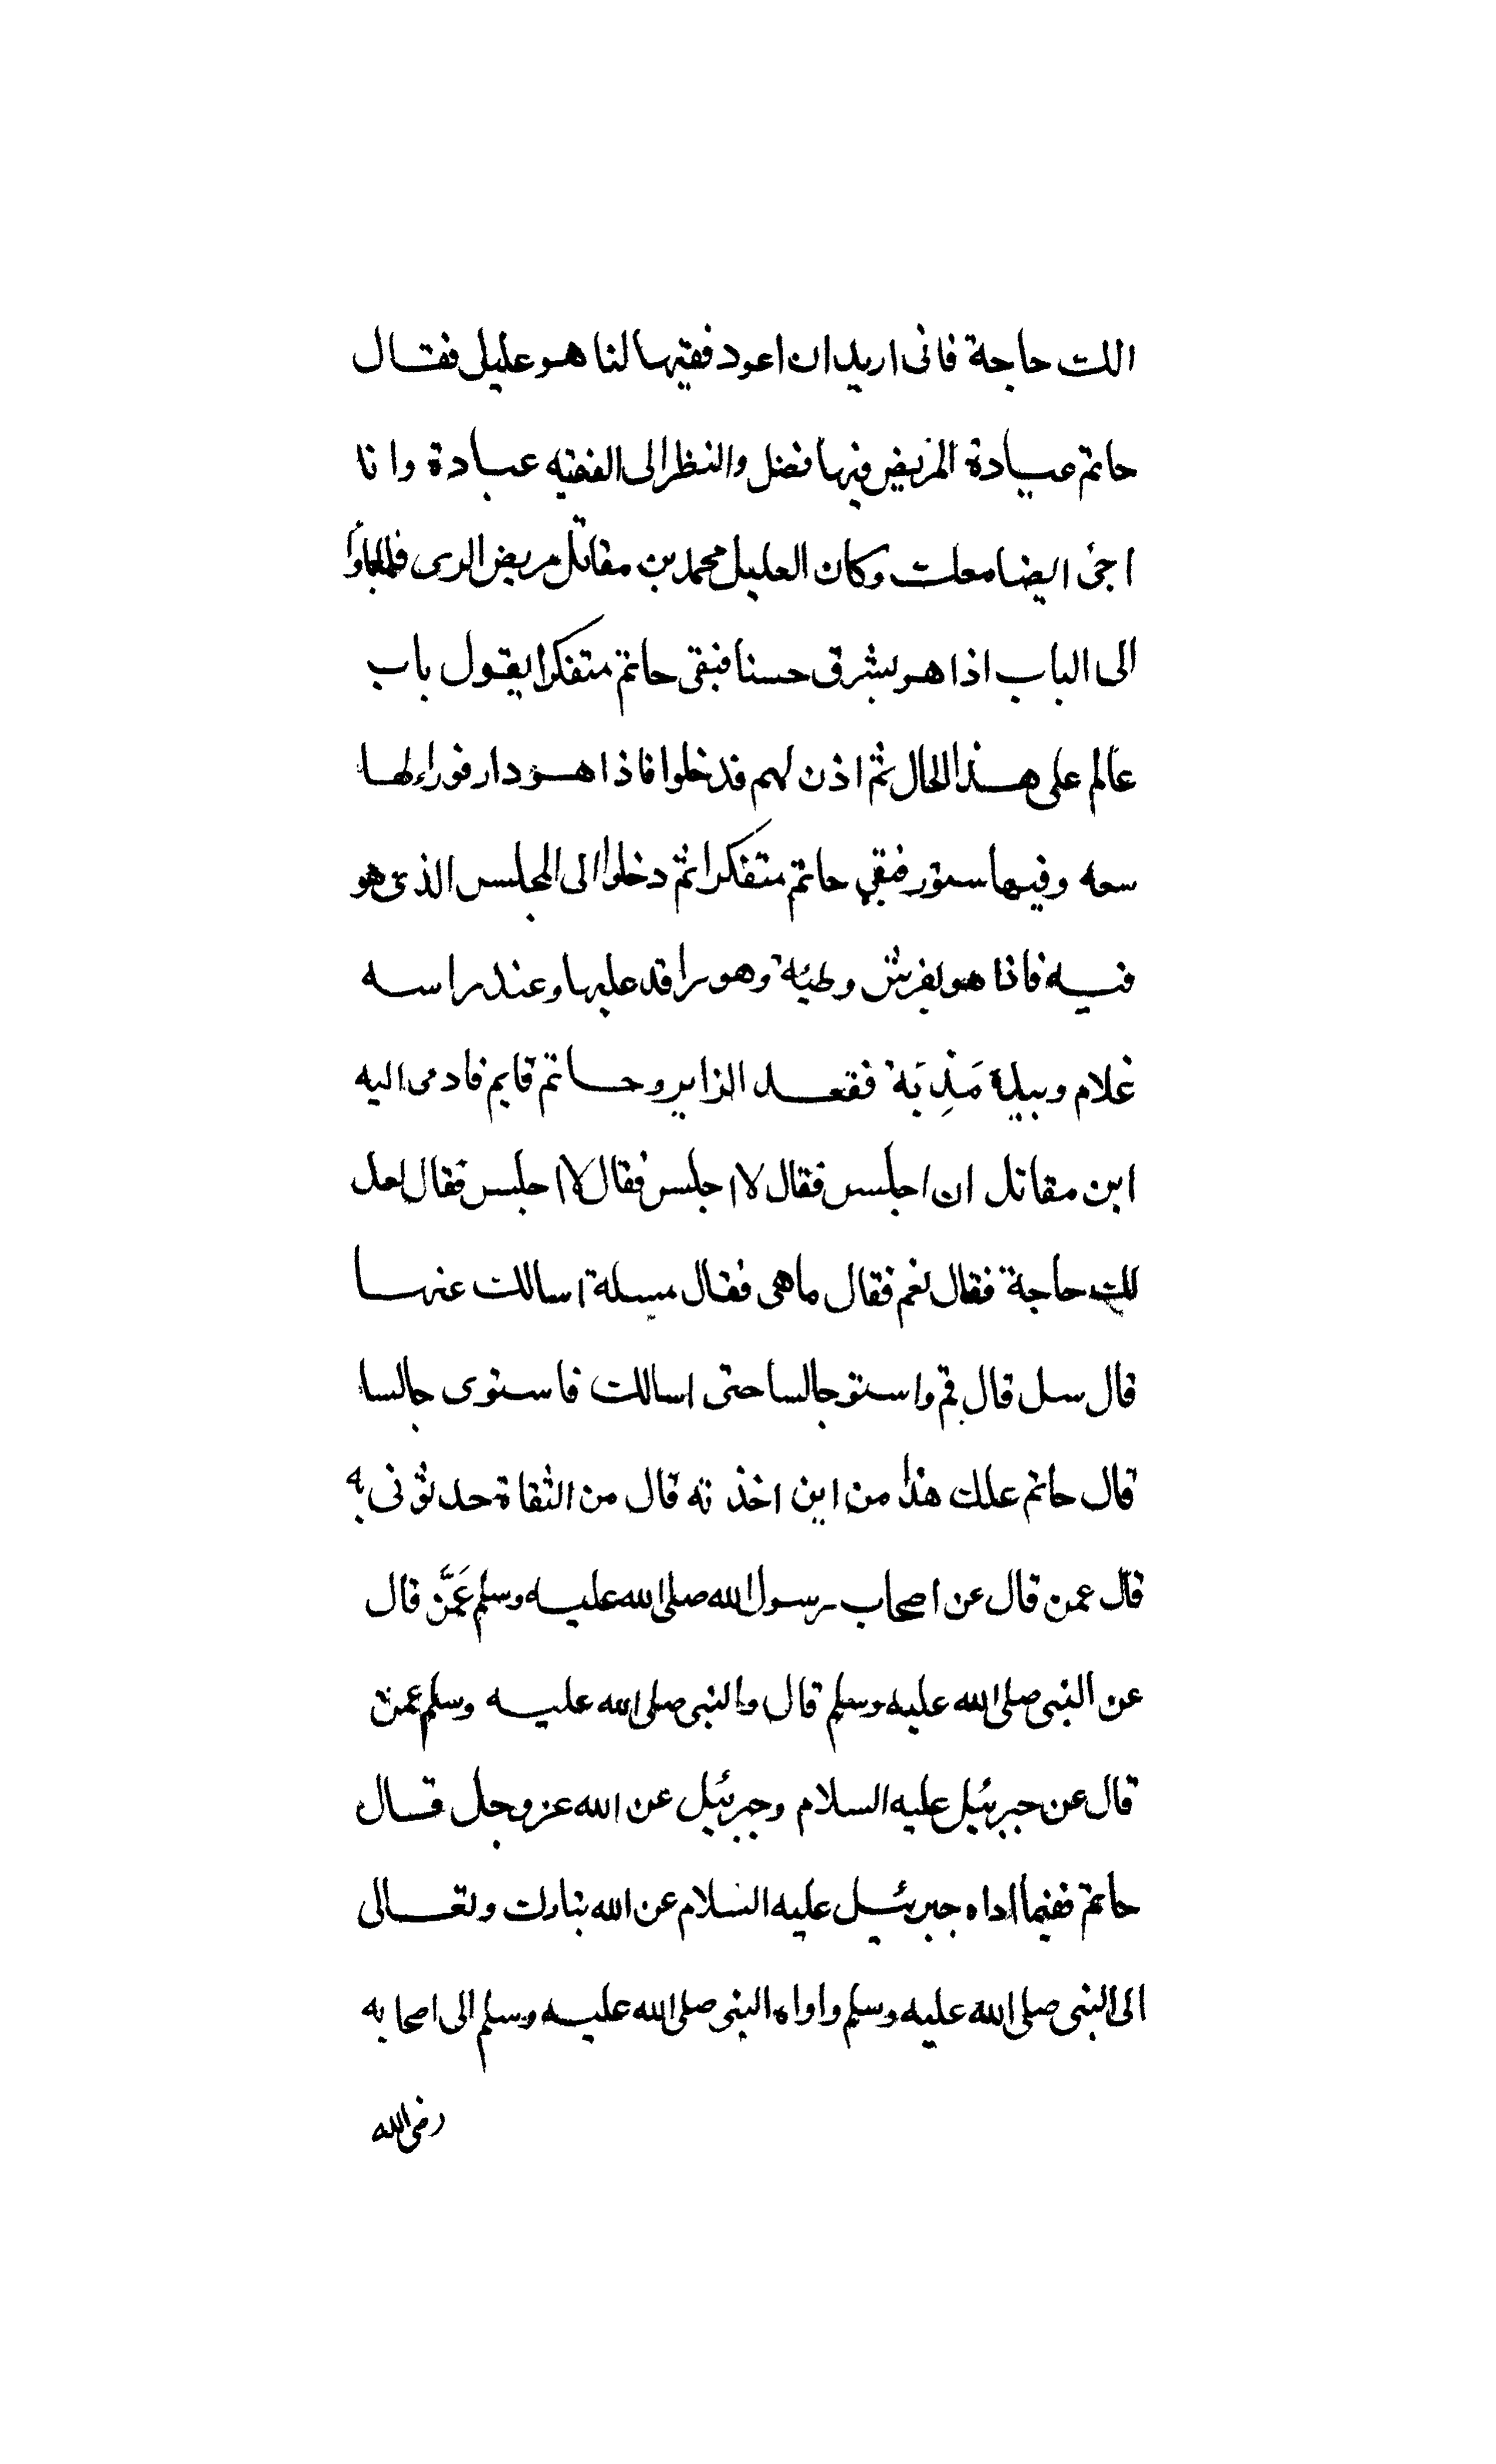 الك حاجة فانى اريد ان اعود فقيها لنا هو عليل فقال
حاتم عيادة المريض فيها فضل والنظر الى الفقيه عبادة وانا
اجئ ايضا معك وكان العليل محمد بن مقاتل مريض الرى فلما جاؤا
الى الباب اذا هو يشرق حسنا فبقى حاتم متفكرا يقول باب
عالم على هذا الحال ثم اذن لهم فدخلوا فاذا هو دار قوراء لها
سعه وفيها ستور فبقي حاتم متفكرا ثم دخلوا الى المجلس الذى هو
فيه فاذا هو بفرش وطيئة وهو راقد عليها وعند راسه
غلام وبيده مَذِبَة فقعد الزاير وحاتم قايم فاومى اليه
ابن مقاتل ان اجلس فقال لا اجلس فقال لا اجلس فقال لعل
لك حاجة فقال نعم فقال ماهى فقال مسيلة اسالك عنها
قال سل قال قم واستو جالسا حتى اسالك فاستوى جالسا
قال حاتم علمك هذا من اين اخذته قال من الثقاة حدثونى به
قال عمن قال عن اصحاب رسول الله صلى الله عليه وسلم عَمَّن قال
عن النبى صلى الله عليه وسلم قال والنبى صلى الله عليه وسلم عمن
قال عن جبرئيل عليه السلام وجبرئيل عن الله عز وجل قال
حاتم ففيما اداه جبرئيل عليه السلام عن الله تبارك وتعالى
الى النبى صلى الله عليه وسلم واواه النبى صلى الله عليه وسلم الى اصحابه
رضى الله